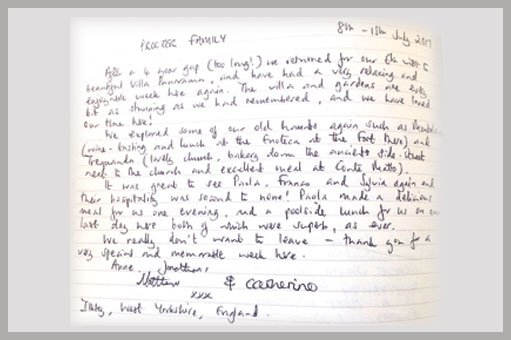 8th - 15th July 2017
PROCTER FAMILY
After a 4 year gap (too long!) we returned for our 6th visit to
beautiful Villa Panorama, and have had a very relaxing and
enjoyable week here again. The villa and gardens are every
bit as stunning as we had remembered, and we have loved
our time here!
We explored some of our old haunts again such as
(wine-tasting and lunch at the Enoteca at the Fort there) and
Trequanda (lovely church, bakery down the ancient side-street
next to the church and excellent meal at Conte Matto).
It was great to see Paola, Franco and Sylvia again and
their hospitality was second to none! Paola made a delicious
meal for us one evening, and a poolside lunch for us on our
last day here both of which were superb, as ever.
We really don't want to leave - thank you for a
very special and memorable week here.
Anne, Jonathan,
Matthew & Catherine
xxx
Ilkley, West Yorkshire, England.